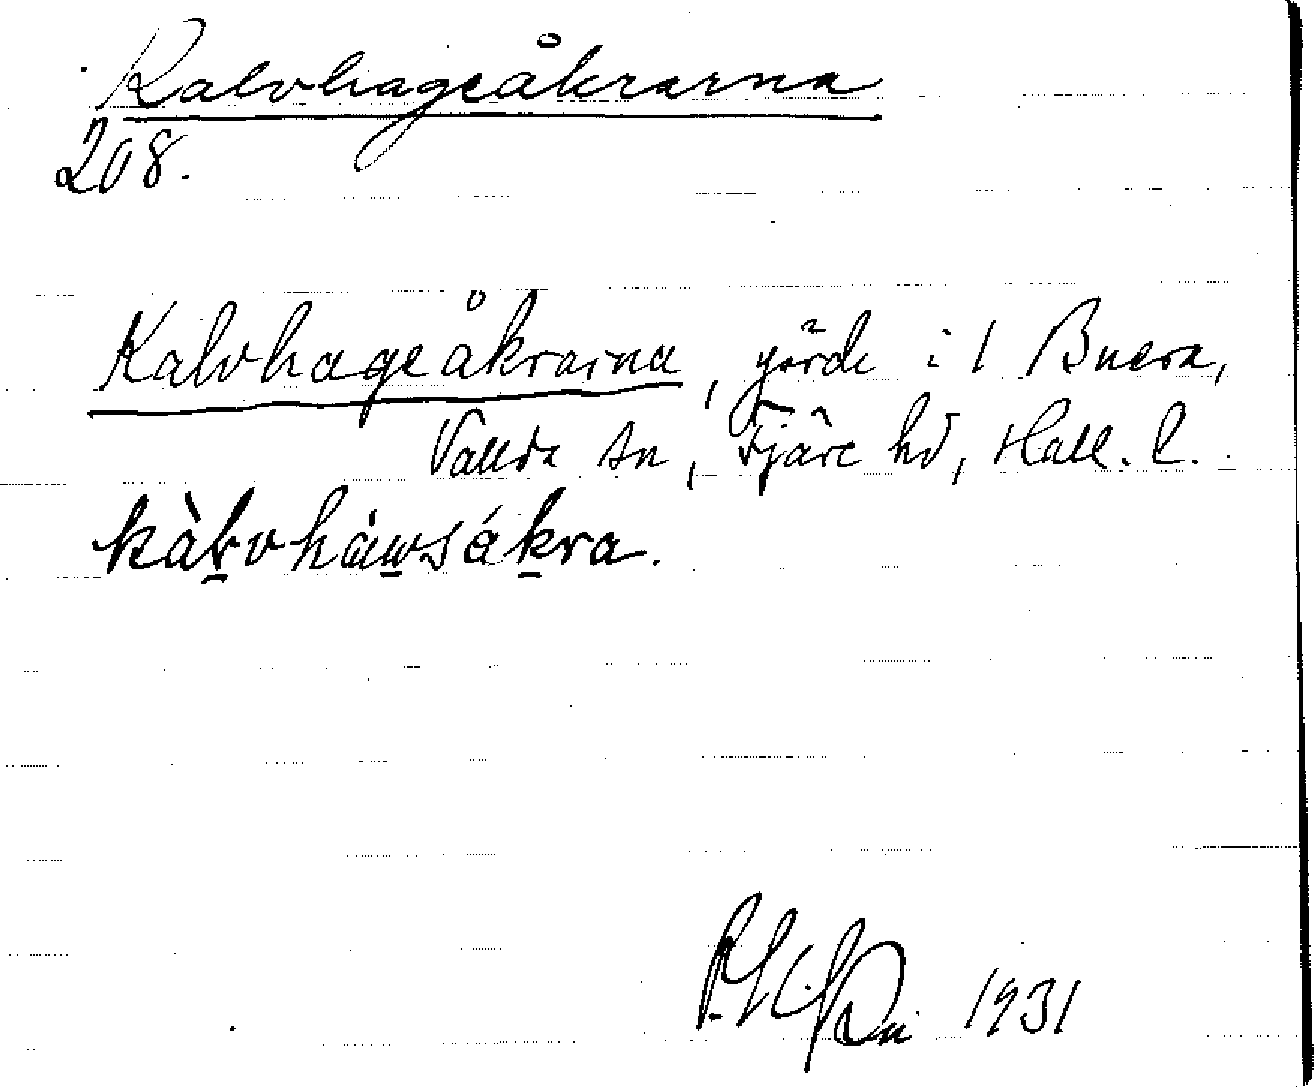 Kalvhageåkrarna
208.
Kalvhageåkrarna, gärde i 1 Buera,
Vallda sn, Fjäre hd, Hall. l.
kàlvháwsákra.
1931